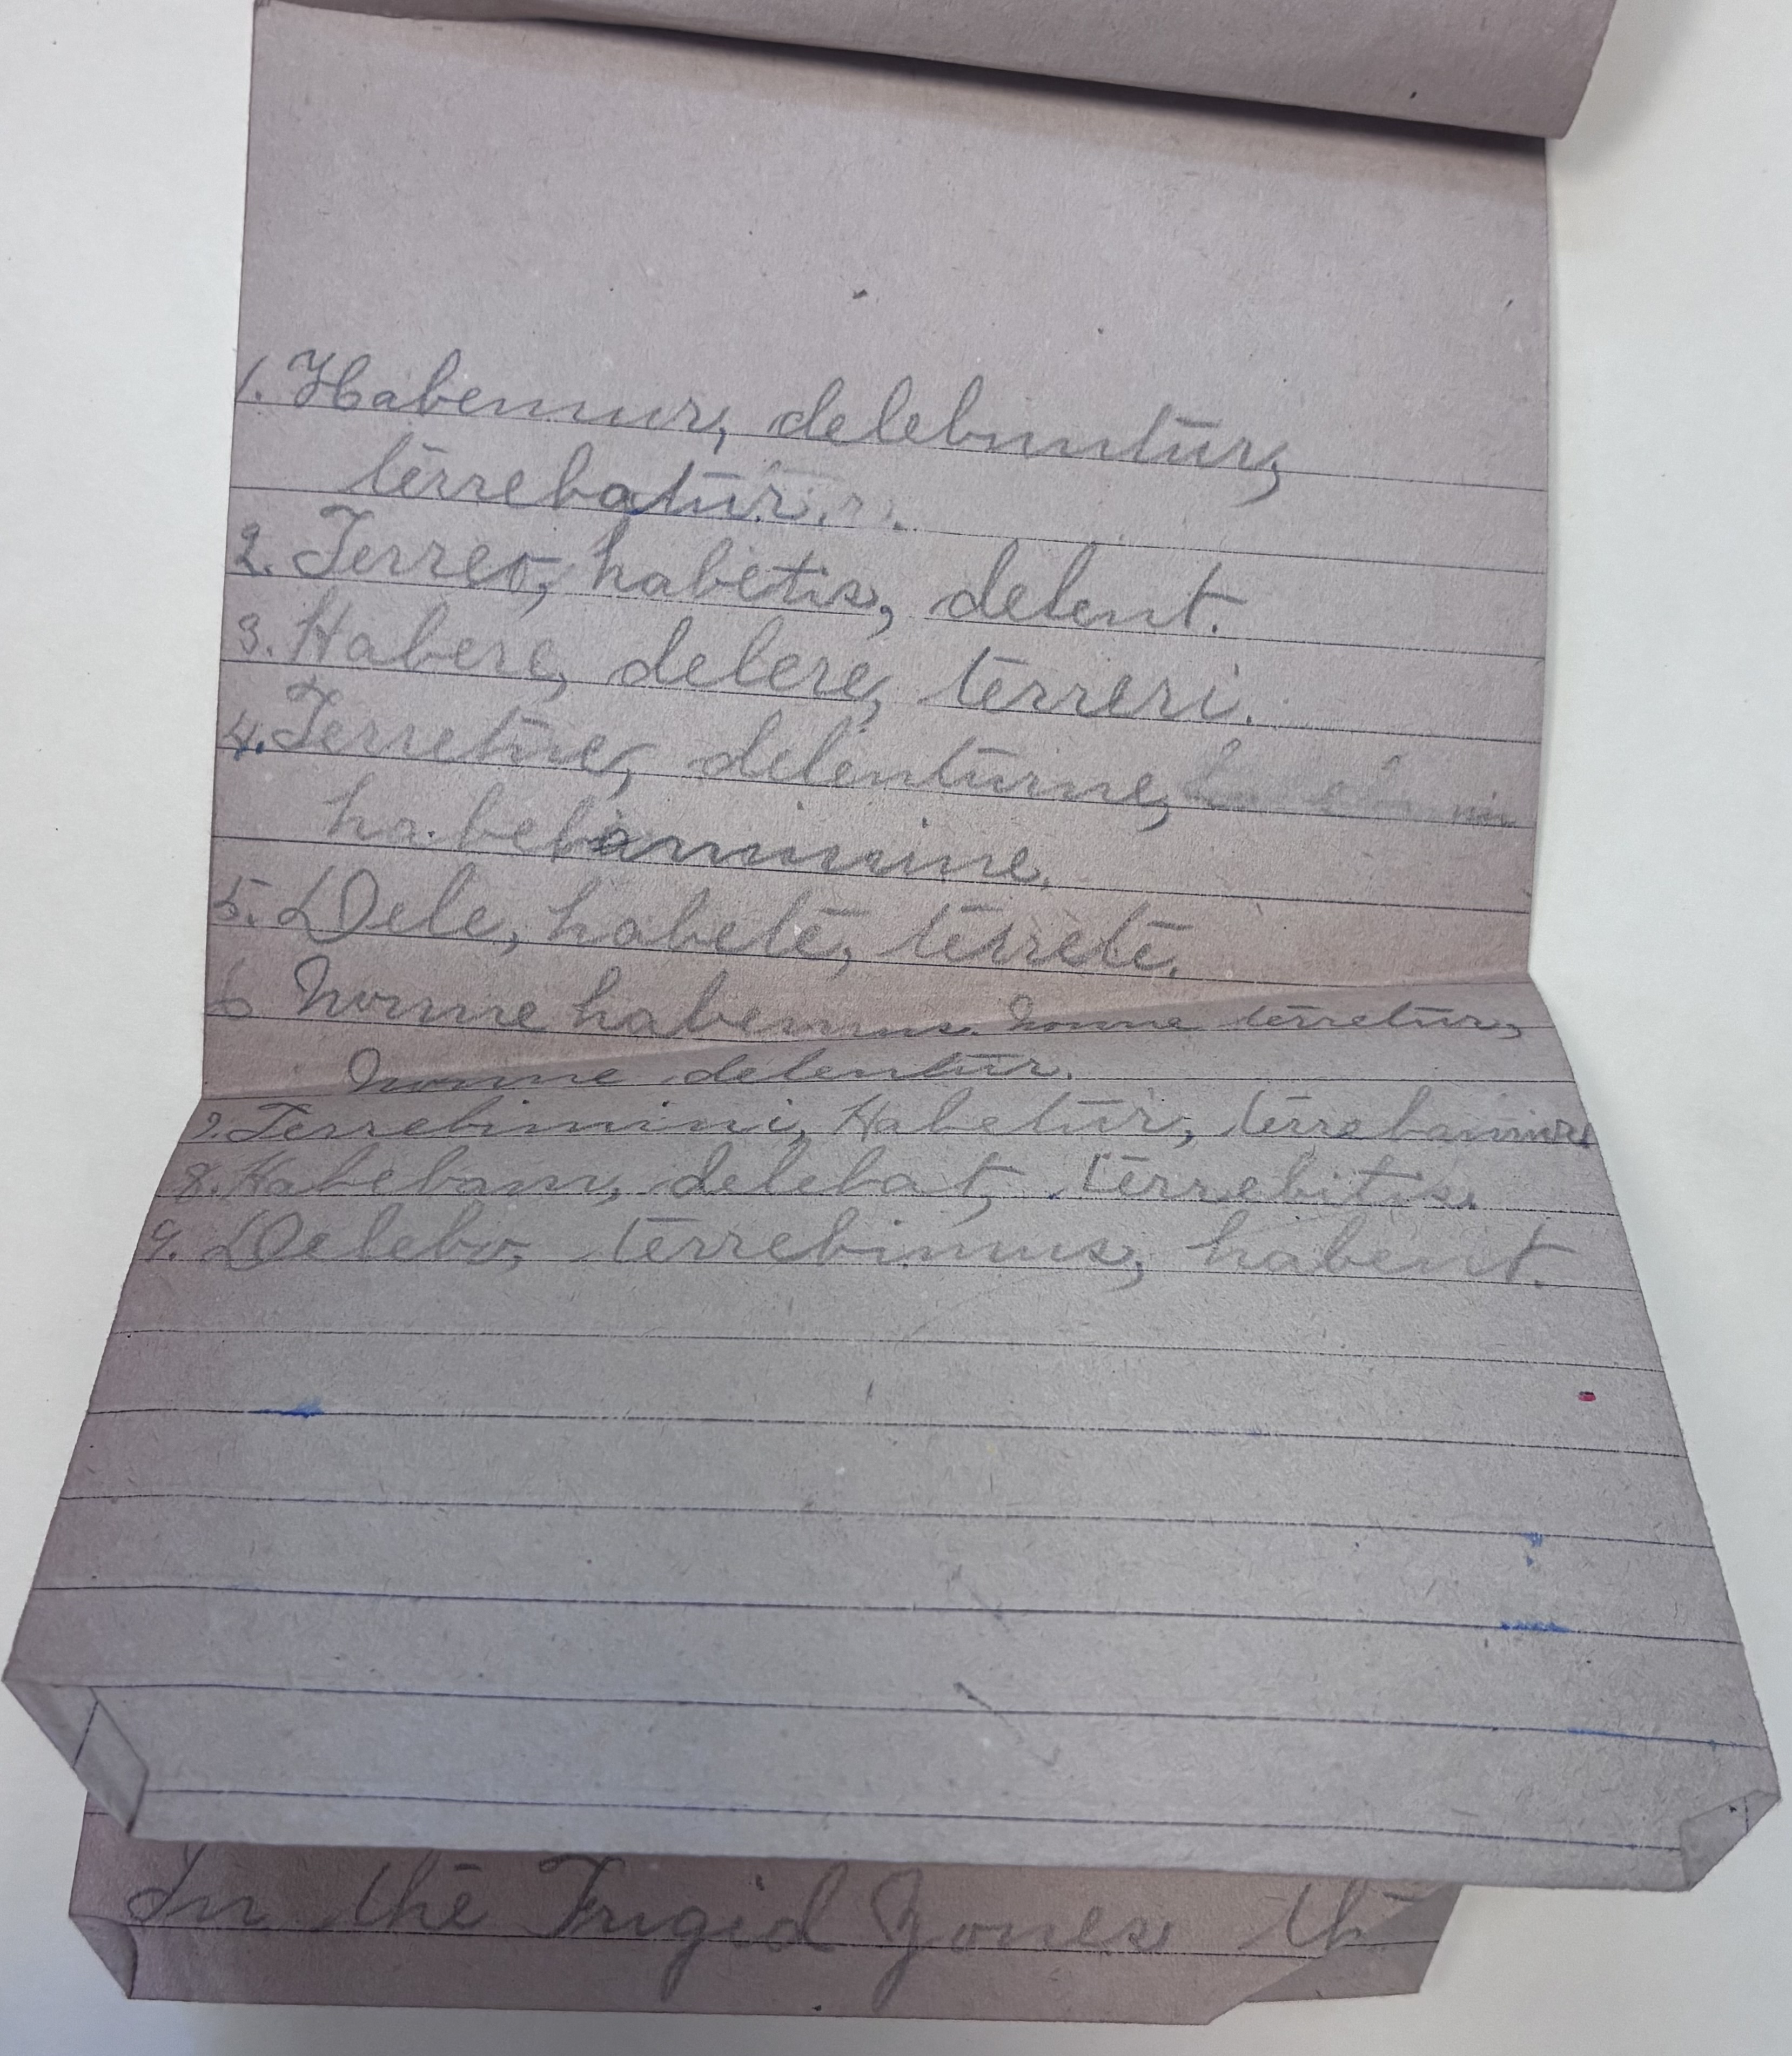 1. Habemur, delebuntur,
terrebatur.
2. Terreo, habetis, delent.
3. Habere, delere, terreri.
4. Terreture, delenturne,
habebamurne.
5. Dele, habete, terrete.
6 Nonne habemus. Nonne terretur,
Nonne delentur.
7. Terrebimini, Habetur, terrebamur
8. Habebam, delebat, terrebitis.
9. Delebo, terrebimus, habent.
In the Frigid Zones th